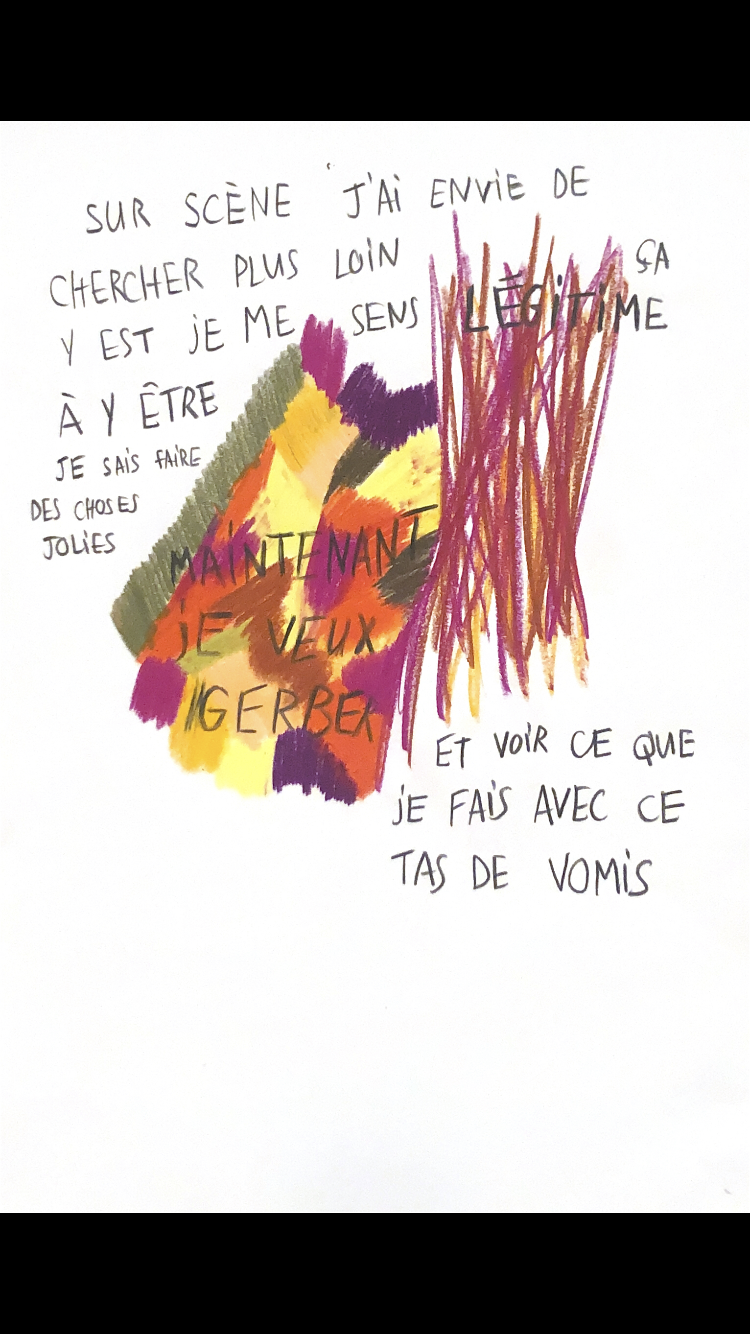 SUR SCÈNE J'Ai ENViE DE
CHERCHER PLUS LOiN ÇA
Y EST JE ME SENS LÉGiTiME
À Y ÊTRE
JE SAiS FAiRE
DES CHOSES
JOLiES
MAiNTENANT
JE VEUX
GERBER
ET VOiR CE QUE
JE FAiS AVEC CE
TAS DE VOMiS